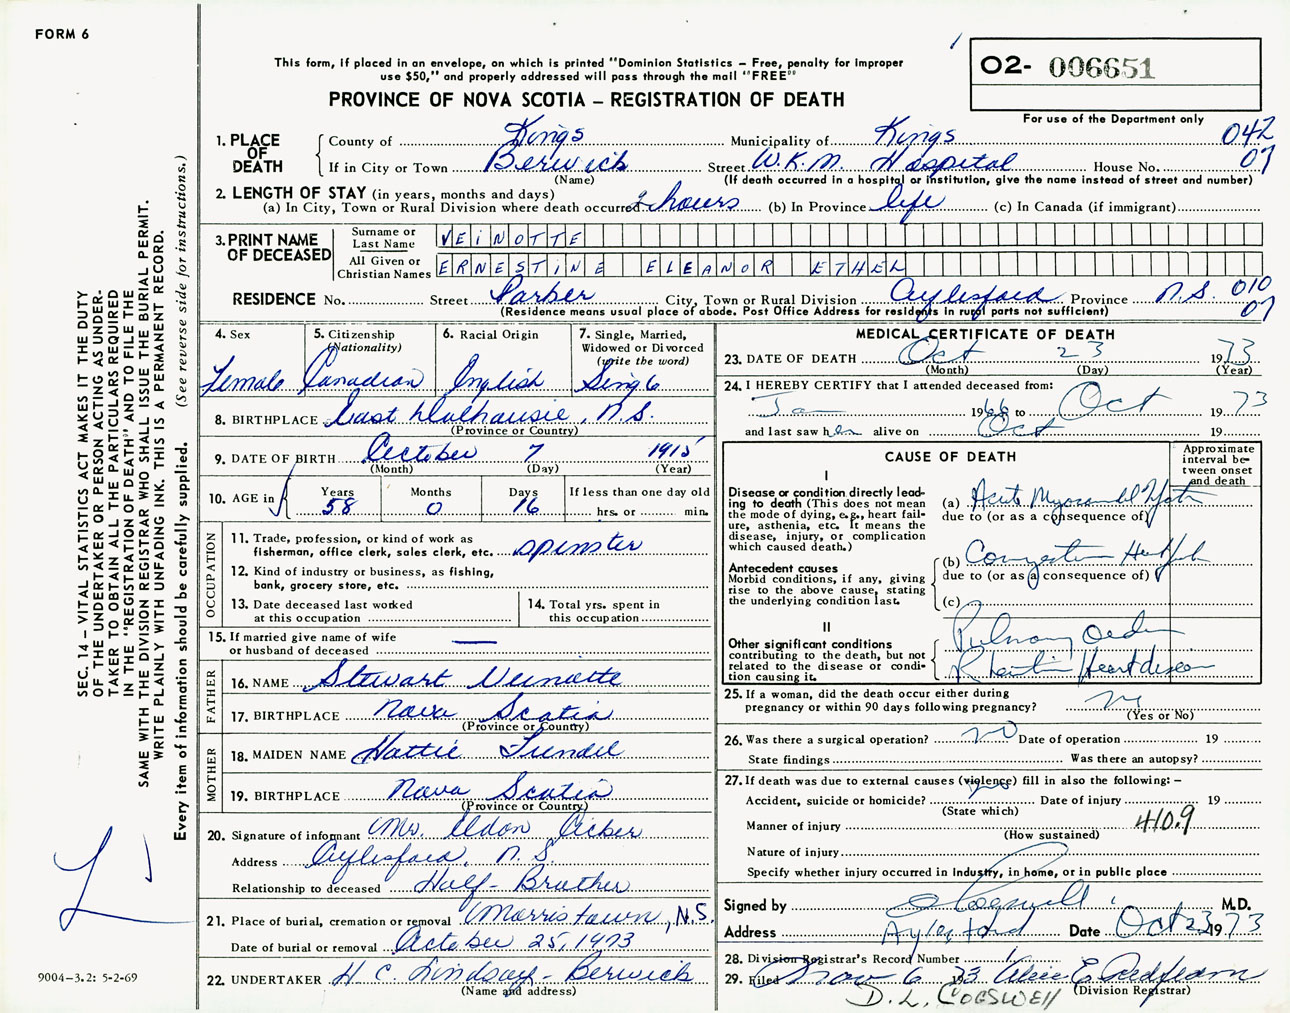 FORM 6
This form, if placed in an envelope, on which is printed "Dominion Statistics – Free, penalty for improper
use $50," and properly addressed will pass through the mail "FREE"
PROVINCE OF NOVA SCOTIA – REGISTRATION OF DEATH
02- 006651
For use of the Department only
SEC. 14 – VITAL STATISTICS ACT MAKES IT THE DUTY
OF THE UNDERTAKER OR PERSON ACTING AS UNDER-
TAKER TO OBTAIN ALL THE PARTICULARS REQUIRED
IN THE "REGISTRATION OF DEATH" AND TO FILE THE
SAME WITH THE DIVISION REGISTRAR WHO SHALL ISSUE THE BURIAL PERMIT.
WRITE PLAINLY WITH UNFADING INK. THIS IS A PERMANENT RECORD.
Every item of information should be carefully supplied. (See reverse side for instructions.)
1. PLACE OF DEATH
County of Kings Municipality of Kings 042
If in City or Town Berwick Street W.K.M. Hospital House No. 07
(Name) (If death occurred in a hospital or institution, give the name instead of street and number)
2. LENGTH OF STAY (in years, months and days)
(a) In City, Town or Rural Division where death occurred 2 hours (b) In Province life (c) In Canada (if immigrant)
3. PRINT NAME OF DECEASED
Surname or Last Name VEINOTTE
All Given or Christian Names ERNESTINE ELEANOR ETHEL
RESIDENCE No. Street Parker City, Town or Rural Division Aylesford Province N.S. 010
(Residence means usual place of abode. Post Office Address for residents in rural parts not sufficient) 07
4. Sex
Female
5. Citizenship
(Nationality)
Canadian
6. Racial Origin
English
7. Single, Married,
Widowed or Divorced
(write the word)
Single
8. BIRTHPLACE East Dalhousie, N.S.
(Province or Country)
9. DATE OF BIRTH October 7 1915
(Month) (Day) (Year)
10. AGE in Years Months Days If less than one day old
58 0 16 hrs. or min.
OCCUPATION
11. Trade, profession, or kind of work as
fisherman, office clerk, sales clerk, etc. spinster
12. Kind of industry or business, as fishing,
bank, grocery store, etc.
13. Date deceased last worked
at this occupation
14. Total yrs. spent in
this occupation
15. If married give name of wife
or husband of deceased —
FATHER
16. NAME Stewart Veinotte
17. BIRTHPLACE Nova Scotia
(Province or Country)
MOTHER
18. MAIDEN NAME Hattie
19. BIRTHPLACE Nova Scotia
(Province or Country)
20. Signature of informant Mr. Eldon Acker
Address Aylesford, N.S.
Relationship to deceased Half-Brother
21. Place of burial, cremation or removal Morristown, N.S.
Date of burial or removal October 25, 1973
22. UNDERTAKER H. C. Lindsay - Berwick
(Name and address)
MEDICAL CERTIFICATE OF DEATH
23. DATE OF DEATH Oct 23 1973
(Month) (Day) (Year)
24. I HEREBY CERTIFY that I attended deceased from:
Jan 1966 to Oct 1973
and last saw her alive on Oct 19
CAUSE OF DEATH
Approximate
interval be-
tween onset
and death
I
Disease or condition directly lead-
ing to death (This does not mean
the mode of dying, e.g., heart fail-
ure, asthenia, etc. It means the
disease, injury, or complication
which caused death.)
(a) Acute Myocardial
due to (or as a consequence of)
Antecedent causes
Morbid conditions, if any, giving
rise to the above cause, stating
the underlying condition last.
(b) Congestive Heart
due to (or as a consequence of)
(c)
II
Other significant conditions
contributing to the death, but not
related to the disease or condi-
tion causing it.
Pulmonary Oedema
Heart disease
25. If a woman, did the death occur either during
pregnancy or within 90 days following pregnancy?
(Yes or No)
26. Was there a surgical operation? no Date of operation 19
State findings Was there an autopsy?
27. If death was due to external causes (violence) fill in also the following: –
Accident, suicide or homicide? Date of injury 19
(State which)
Manner of injury 410.9
(How sustained)
Nature of injury
Specify whether injury occurred in industry, in home, or in public place
Signed by Cogswell M.D.
Address Aylesford Date Oct 23 1973
28. Division Registrar's Record Number
29. Filed Nov 6 1973 Alice E.
(Division Registrar)
D. L. COGSWELL
9004-3.2: 5-2-69